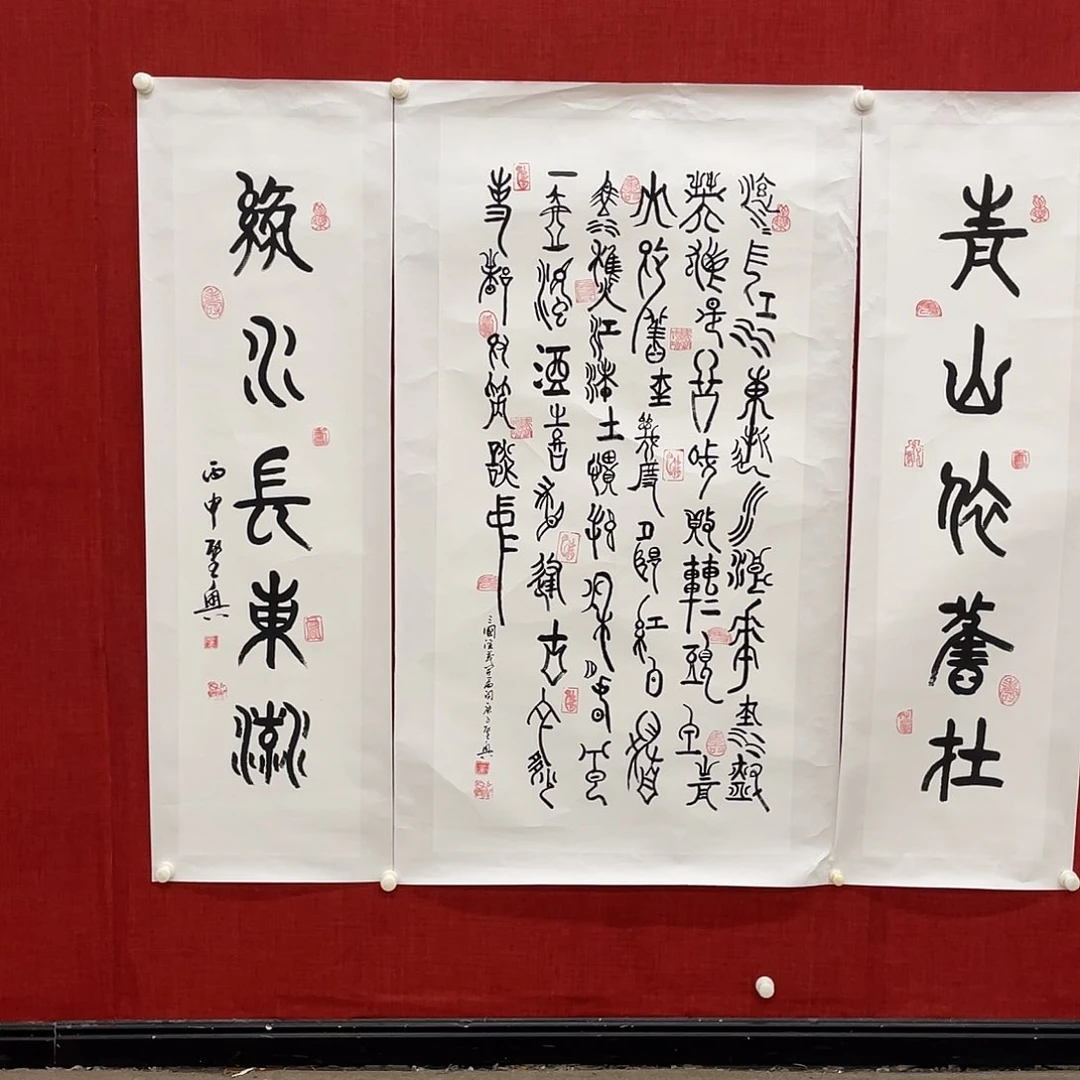 青山依舊在
滾滾長江東逝水浪花淘盡
英雄是非成敗轉頭空青
山依舊在幾度夕陽紅白髮
漁樵江渚上慣看秋月春風
一壺濁酒喜相逢古今多少
事都付笑談中
三國演義開篇詞庚子聖興
綠水長東流
丙申聖興